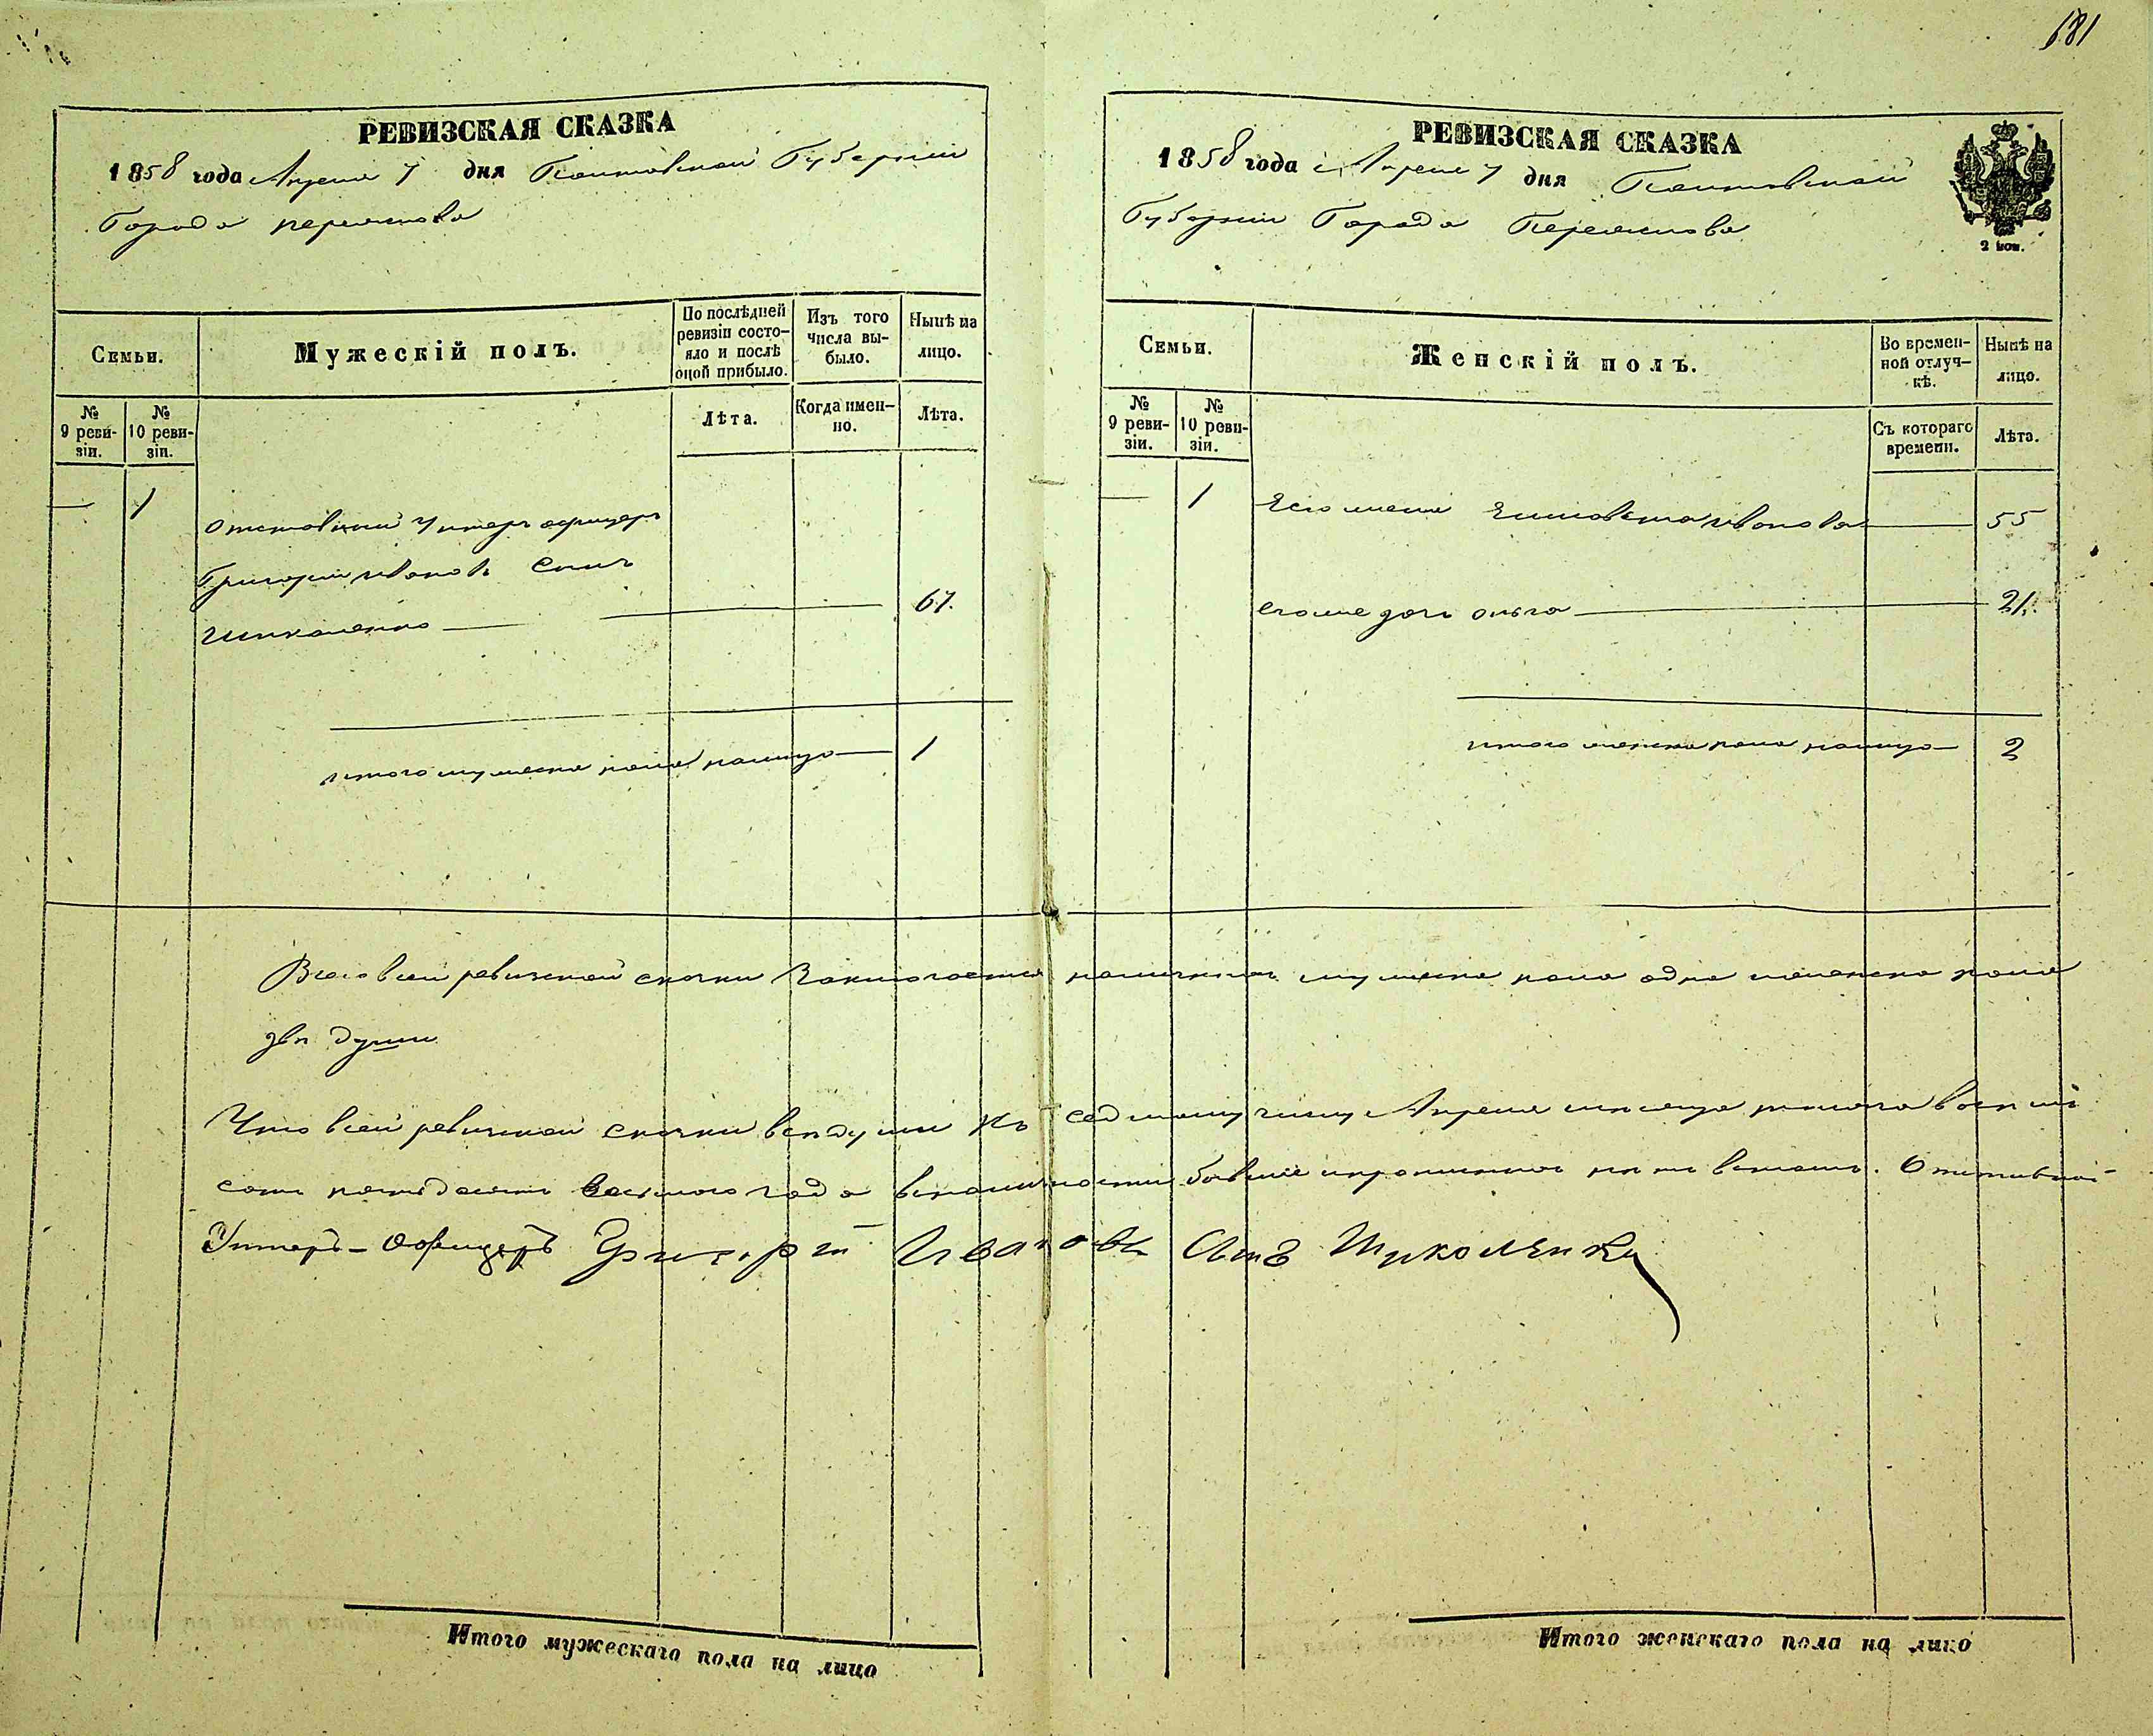 181
РЕВИЗСКАЯ СКАЗКА
1858 года Апреля 7 дня Полтавской Губернии
Города переяслова
Семьи.
Мужескій полъ.
По послѣдней ревизіи состояло и послѣ оной прибыло.
Изъ того числа выбыло.
Нынѣ на лицо.
№ 9 ревизіи.
№ 10 ревизіи.
Лѣта.
Когда именно.
Лѣта.
— 1 Отставный Унтеръ офицеръ
Григорий ивановъ Синъ
67.
итого мужеска пола налицо — 1
РЕВИЗСКАЯ СКАЗКА
1858 года Апреля 7 дня Полтавской
Губернии Города Переяслова
2 коп.
Семьи.
Женскій полъ.
Во временной отлучкѣ.
Нынѣ на лицо.
№ 9 ревизіи.
№ 10 ревизіи.
Съ котораго времени.
Лѣта.
— 1 Его жена Елисавета иванова — 55
его же дочь ольга — 21.
итого женска пола налицо — 2
Всего в сей ревизской скаски Заключается наличных мужеска пола одна и женска пола
две души
Что в сей ревизской скаски все души къ седмому числу Апреля месяца тысяча восемь
сотъ пятьдесятъ восьмого года в наличности бывшие и прописных нет. Отставной
Унтеръ-Офицеръ Григорий Ивановъ Синъ Шуколенко
Итого мужескаго пола на лицо
Итого женскаго пола на лицо